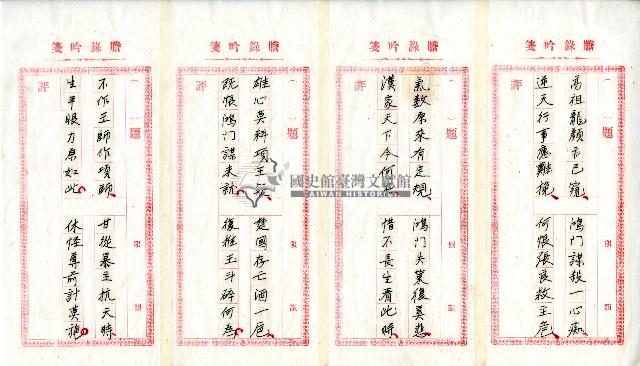 謄錄吟箋
（　）題
評
限韻
高祖龍顏君已窺
逆天行事應難
鴻門謀殺一心痴
何恨張良救主危
謄錄吟箋
（　）題
評
限韻
氣數原來有定規
漢家天下今何
鴻門失策後莫悲
惜不長生看此時
謄錄吟箋
（　）題
評
限韻
雄心莫料項王
既恨鴻门謀未就
楚國存亡酒一卮
後推玉斗碎何為
謄錄吟箋
（　）題
評
限韻
不作王師作項師
生平眼力原如此
甘從暴主抗天時
休怪尊前計莫施
國史館臺灣文獻館
TAIWAN HISTORICA